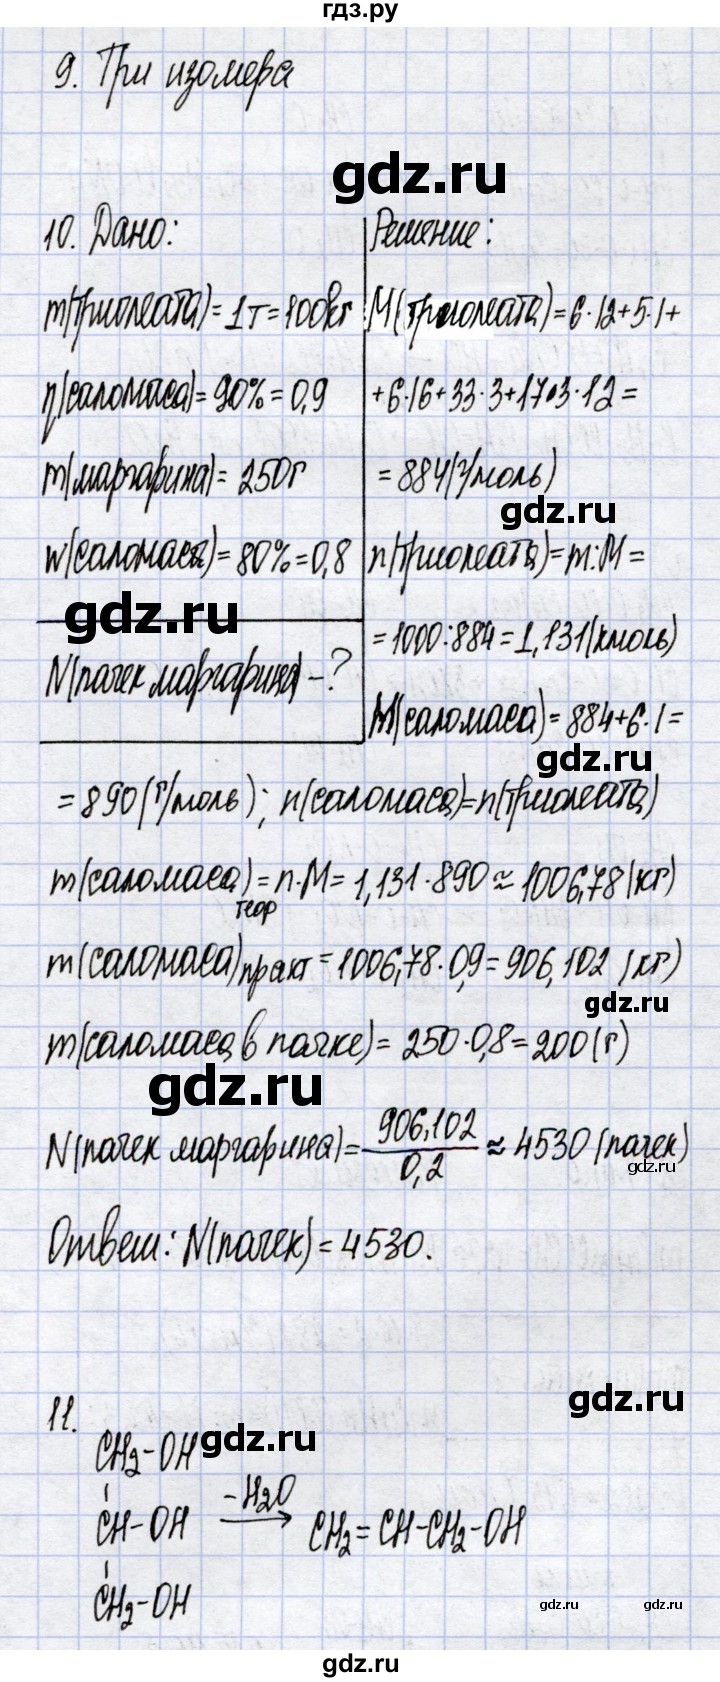 гдз.ру
9. Три изомера
gdz.ru
10. Дано:
m(триолеата)=1т=100кг
η(саломаса)=90%=0,9
m(маргарина)=250г
w(саломаса)=80%=0,8
gdz.ru
N(пачек маргарина)-?
Решение:
M(триолеата)=6·12+5·1+
+6·16+33·3+17·3·12=
=884(г/моль)
gdz.ru
n(триолеата)=m:M=
=1000:884=1,131(кмоль)
M(саломаса)=884+6·1=
gdz.ru
=890(г/моль); n(саломаса)=n(триолеата)
m(саломаса)теор=n·M=1,131·890≈1006,78(кг)
m(саломаса)практ=1006,78·0,9=906,102 (кг)
gdz.ru
m(саломаса в пачке)=250·0,8=200(г)
gdz.ru
N(пачек маргарина)=906,102/0,2≈4530(пачек)
gdz.ru
Ответ: N(пачек)=4530.
gdz.ru
11.
gdz.ru
CH2-OH
CH-OH -H2O → CH2=CH-CH2-OH
CH2-OH
gdz.ru gdz.ru
gdz.ru